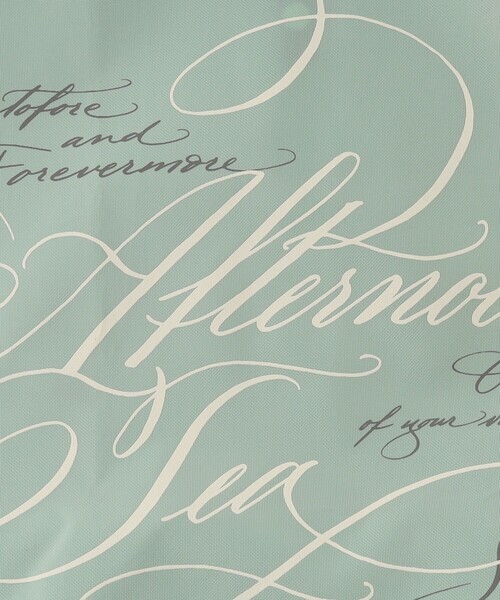 tofore
and
Forevermore
Afternoo
Tea
of your